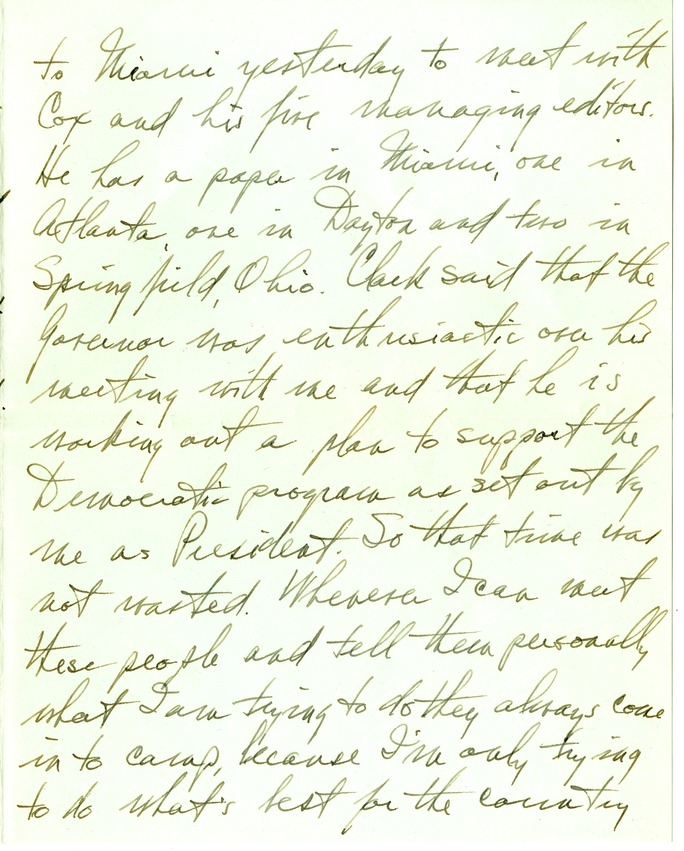 to Miami yesterday to meet with
Cox and his five managing editors.
He has a paper in Miami, one in
Atlanta, one in Dayton and two in
Springfield, Ohio. Clark said that the
Governor was enthusiastic over his
meeting with me and that he is
working out a plan to support the
Democratic program as set out by
me as President. So that time was
not wasted. Whenever I can meet
these people and tell them personally
what I am trying to do they always come
in to camp, because I'm only trying
to do what's best for the country